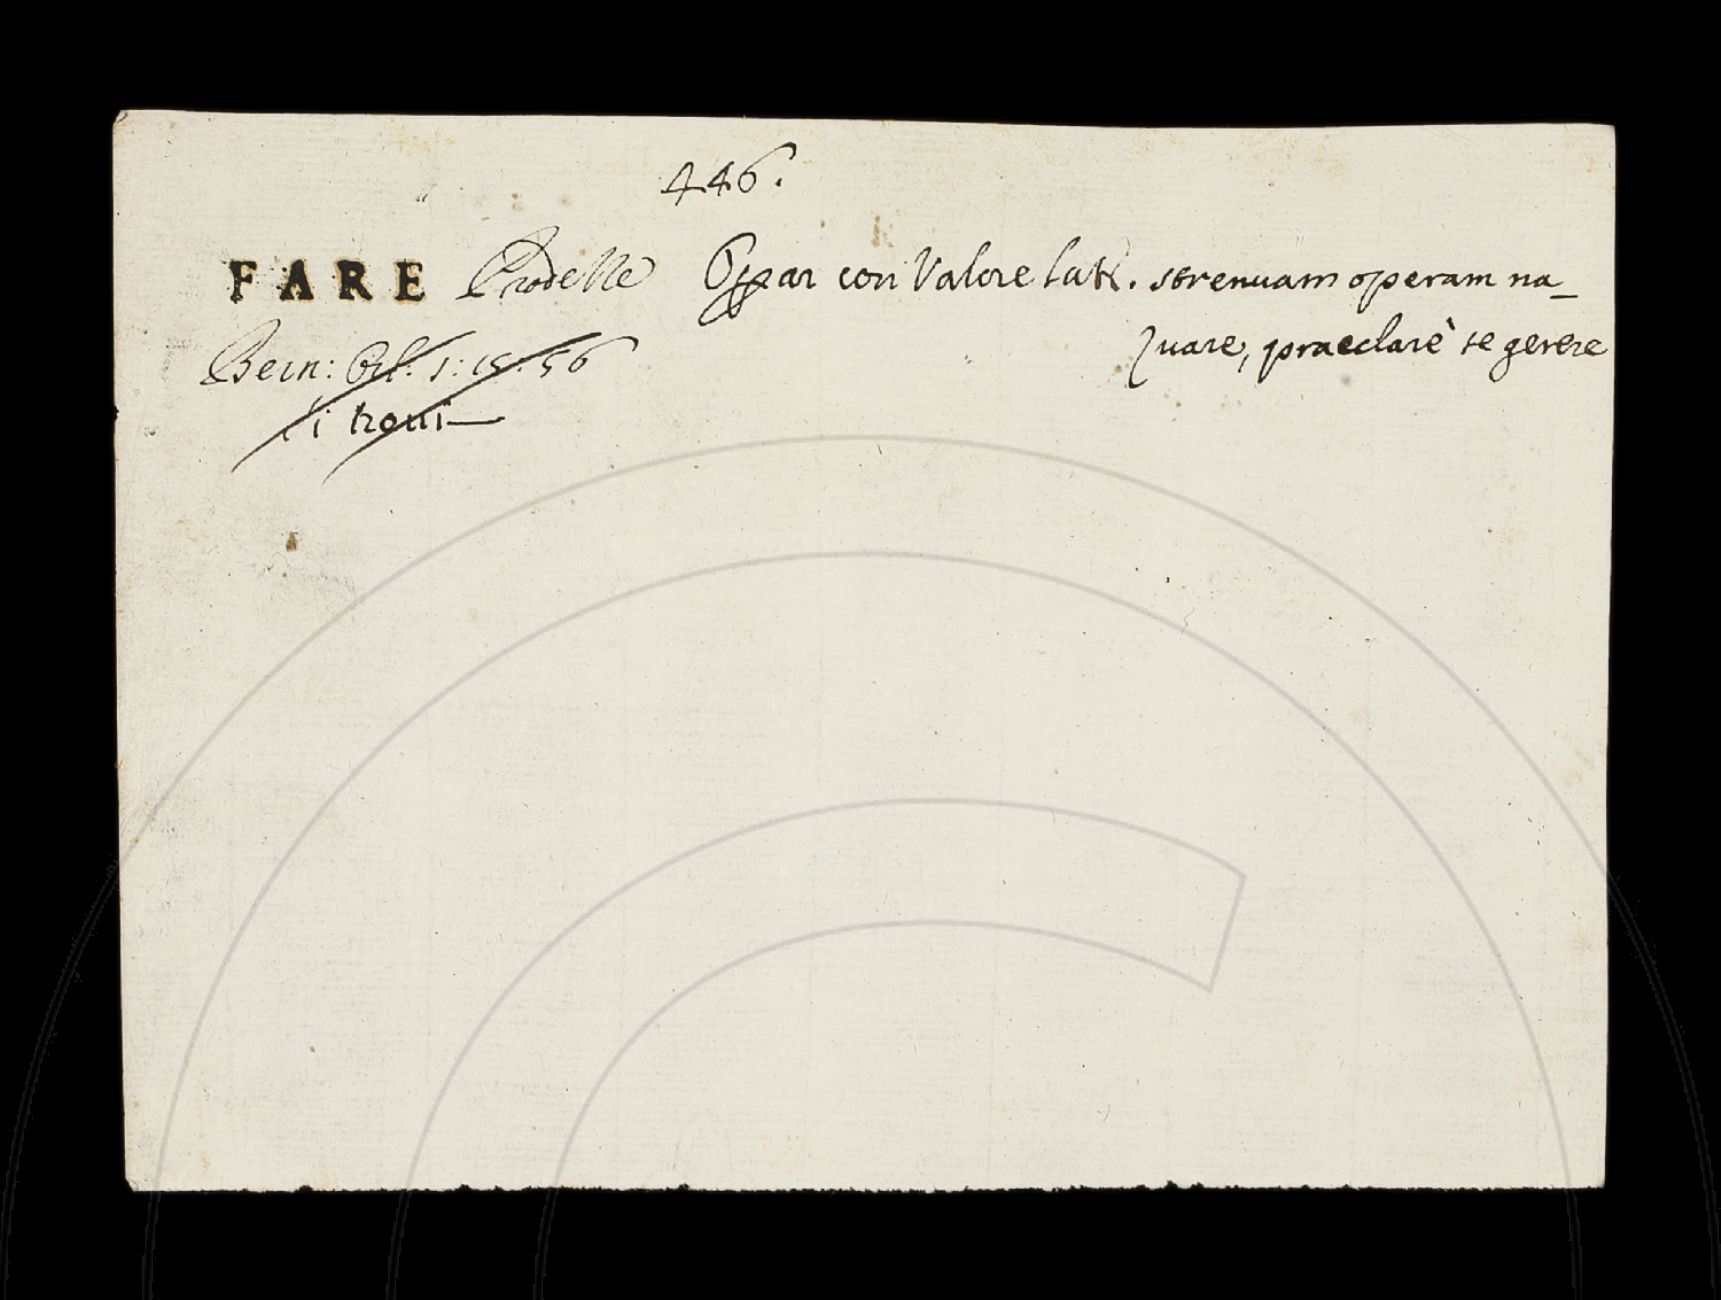 446.
FARE Prodezze Oprar con Valore lat. strenuam operam na_
vare, praeclarè se gerere
Bern: Orl: 1: 15: 56
si trovi